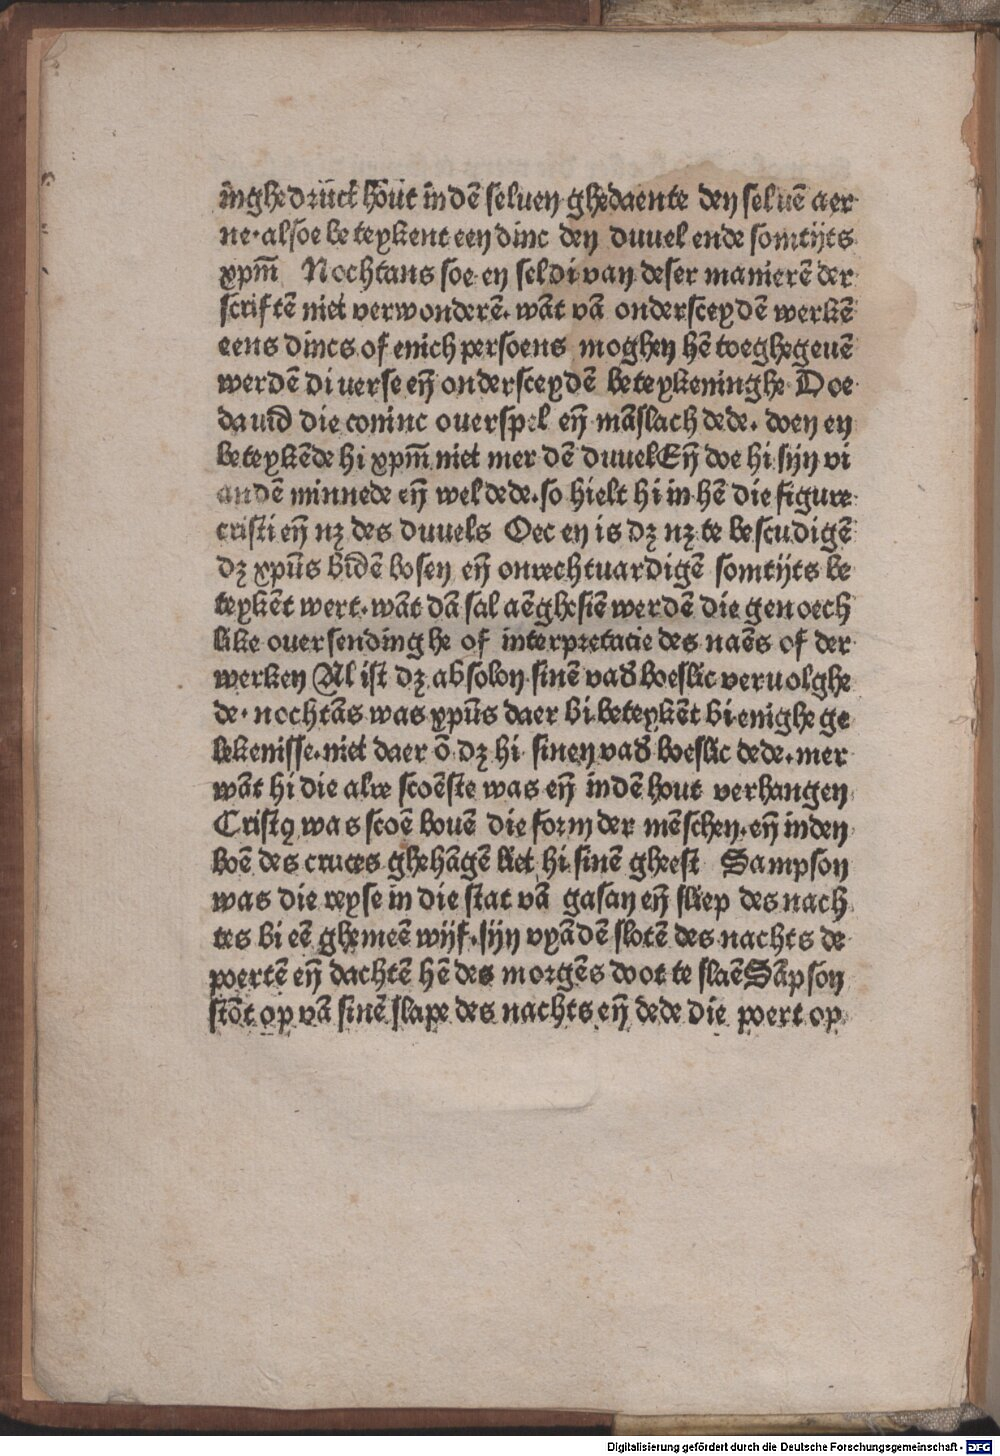 inghedruct hout in dē seluen ghedaente den seluē aer
ne· alsoe beteykent een dinc den duuel ende somtijts
xpm̄ Nochtans soe en seldi van deser manierē der
scriftē niet verwonderē. wāt vā ondersceydē werkē
eens dincs of enich persoens moghen hē toeghegeuē
werdē diuerse eñ ondersceydē beteykeninghe Doe
dauid die coninc ouerspel eñ māslach dede. doen en
beteykēde hi xpm̄ niet mer dē duuel Eñ doe hi sijn vi
andē minnede eñ wel dede. so hielt hi in hē die figure
cristi eñ nꝫ des duuels Oec en is dꝫ nꝫ te bescudigē
dꝫ xpūs bidē bosen eñ onrechtuardigē somtijts be
teykēt wert. wāt dā sal aēghesiē werdē die genoech
like ouersendinghe of interpretacie des naēs of der
werken Al ist dꝫ absolon sinē vad̄ boeslic veruolghe
de· nochtās was xpūs daer bi beteykēt bi enighe ge
likenisse. niet daer ō dꝫ hi sinen vad̄ boeslic dede. mer
wāt hi die alre scoēste was eñ in dē hout verhangen
Cristꝰ was scoē bouē die form der mēschen. eñ in den
boē des cruces ghehāgē liet hi sinē gheest Sampson
was die reyse in die stat vā gasan eñ sliep des nach
tes bi eē ghemeē wijf. sijn vyādē slotē des nachts de
poertē eñ dachtē hē des morgēs doot te slaē Sāpson
stōt op vā sinē slape des nachts eñ dede die poert op
Digitalisierung gefördert durch die Deutsche Forschungsgemeinschaft - DFG